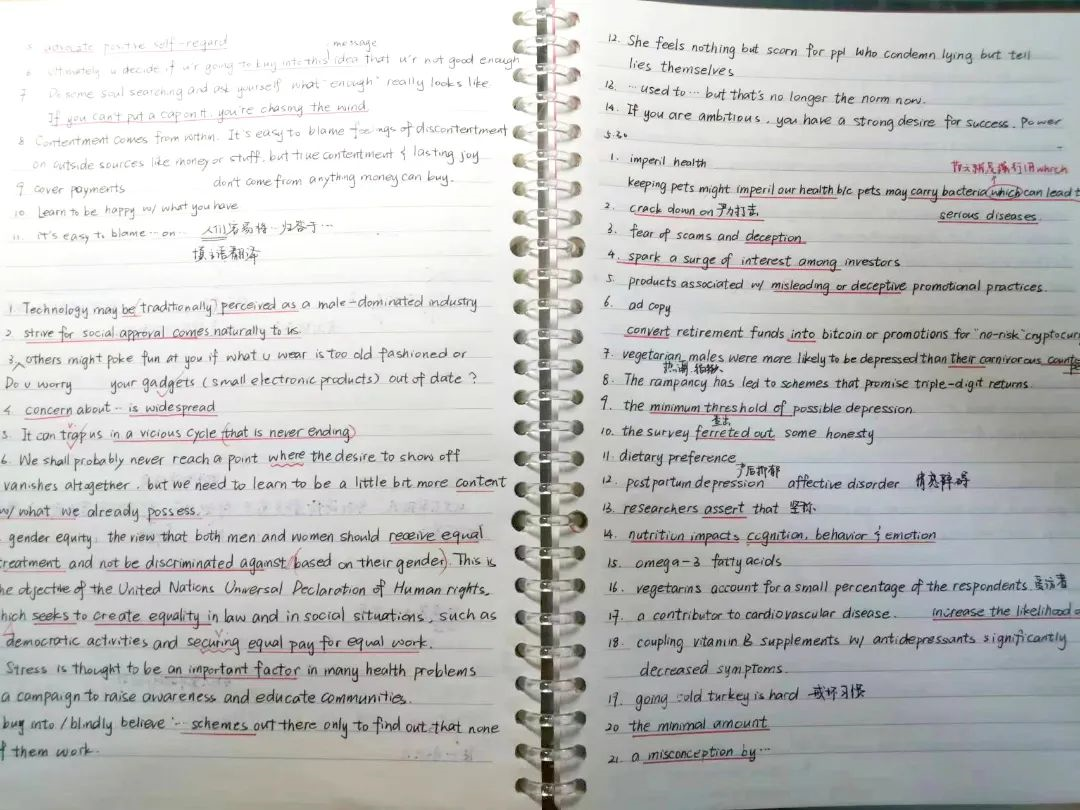 5 advocate positive self-regard
message
6 Ultimately u decide if u'r going to buy into this idea that u'r not good enough
7 Do some soul searching and ask yourself what "enough" really looks like.
If you can't put a cap on it, you're chasing the wind.
8 Contentment comes from within. It's easy to blame feelings of discontentment
on outside sources like money or stuff, but true contentment & lasting joy
don't come from anything money can buy.
9 cover payments
10 Learn to be happy w/ what you have
11. it's easy to blame … on … 人们容易将…归咎于…
英语翻译
1. Technology may be (traditionally) perceived as a male-dominated industry
2. strive for social approval comes naturally to us
3. others might poke fun at you if what u wear is too old fashioned or
Do u worry your gadgets (small electronic products) out of date?
4. concern about … is widespread
5. It can trap us in a vicious cycle (that is never ending)
6. We shall probably never reach a point where the desire to show off
vanishes altogether, but we need to learn to be a little bit more content
w/ what we already possess.
gender equity, the view that both men and women should receive equal
treatment and not be discriminated against (based on their gender). This is
he objective of the United Nations Universal Declaration of Human rights,
hich seeks to create equality in law and in social situations, such as
democratic activities and securing equal pay for equal work.
Stress is thought to be an important factor in many health problems
a campaign to raise awareness and educate communities.
buy into / blindly believe … schemes out there only to find out that none
f them work.
12. She feels nothing but scorn for ppl who condemn lying but tell
lies themselves
13. … used to … but that's no longer the norm now.
14. If you are ambitious, you have a strong desire for success, power
5.30
1. imperil health
which
keeping pets might imperil our health b/c pets may carry bacteria which can lead t
serious diseases.
2. crack down on 严力打击
3. fear of scams and deception
4. spark a surge of interest among investors
5. products associated w/ misleading or deceptive promotional practices.
6. ad copy
convert retirement funds into bitcoin or promotions for "no-risk" cryptocurr
7. vegetarian males were more likely to be depressed than their carnivorous count
热潮, 猖獗
8. The rampancy has led to schemes that promise triple-digit returns.
9. the minimum threshold of possible depression
查出
10. the survey ferreted out some honesty
11. dietary preference
产后抑郁
12. postpartum depression affective disorder 情感障碍
13. researchers assert that 坚称
14. nutrition impacts cognition, behavior & emotion
15. omega-3 fatty acids
16. vegetarins account for a small percentage of the respondents 受访者
17. a contributor to cardiovascular disease. increase the likelihood o
18. coupling vitamin B supplements w/ antidepressants significantly
decreased symptoms.
19. going cold turkey is hard 戒坏习惯
20 the minimal amount
21. a misconception by …